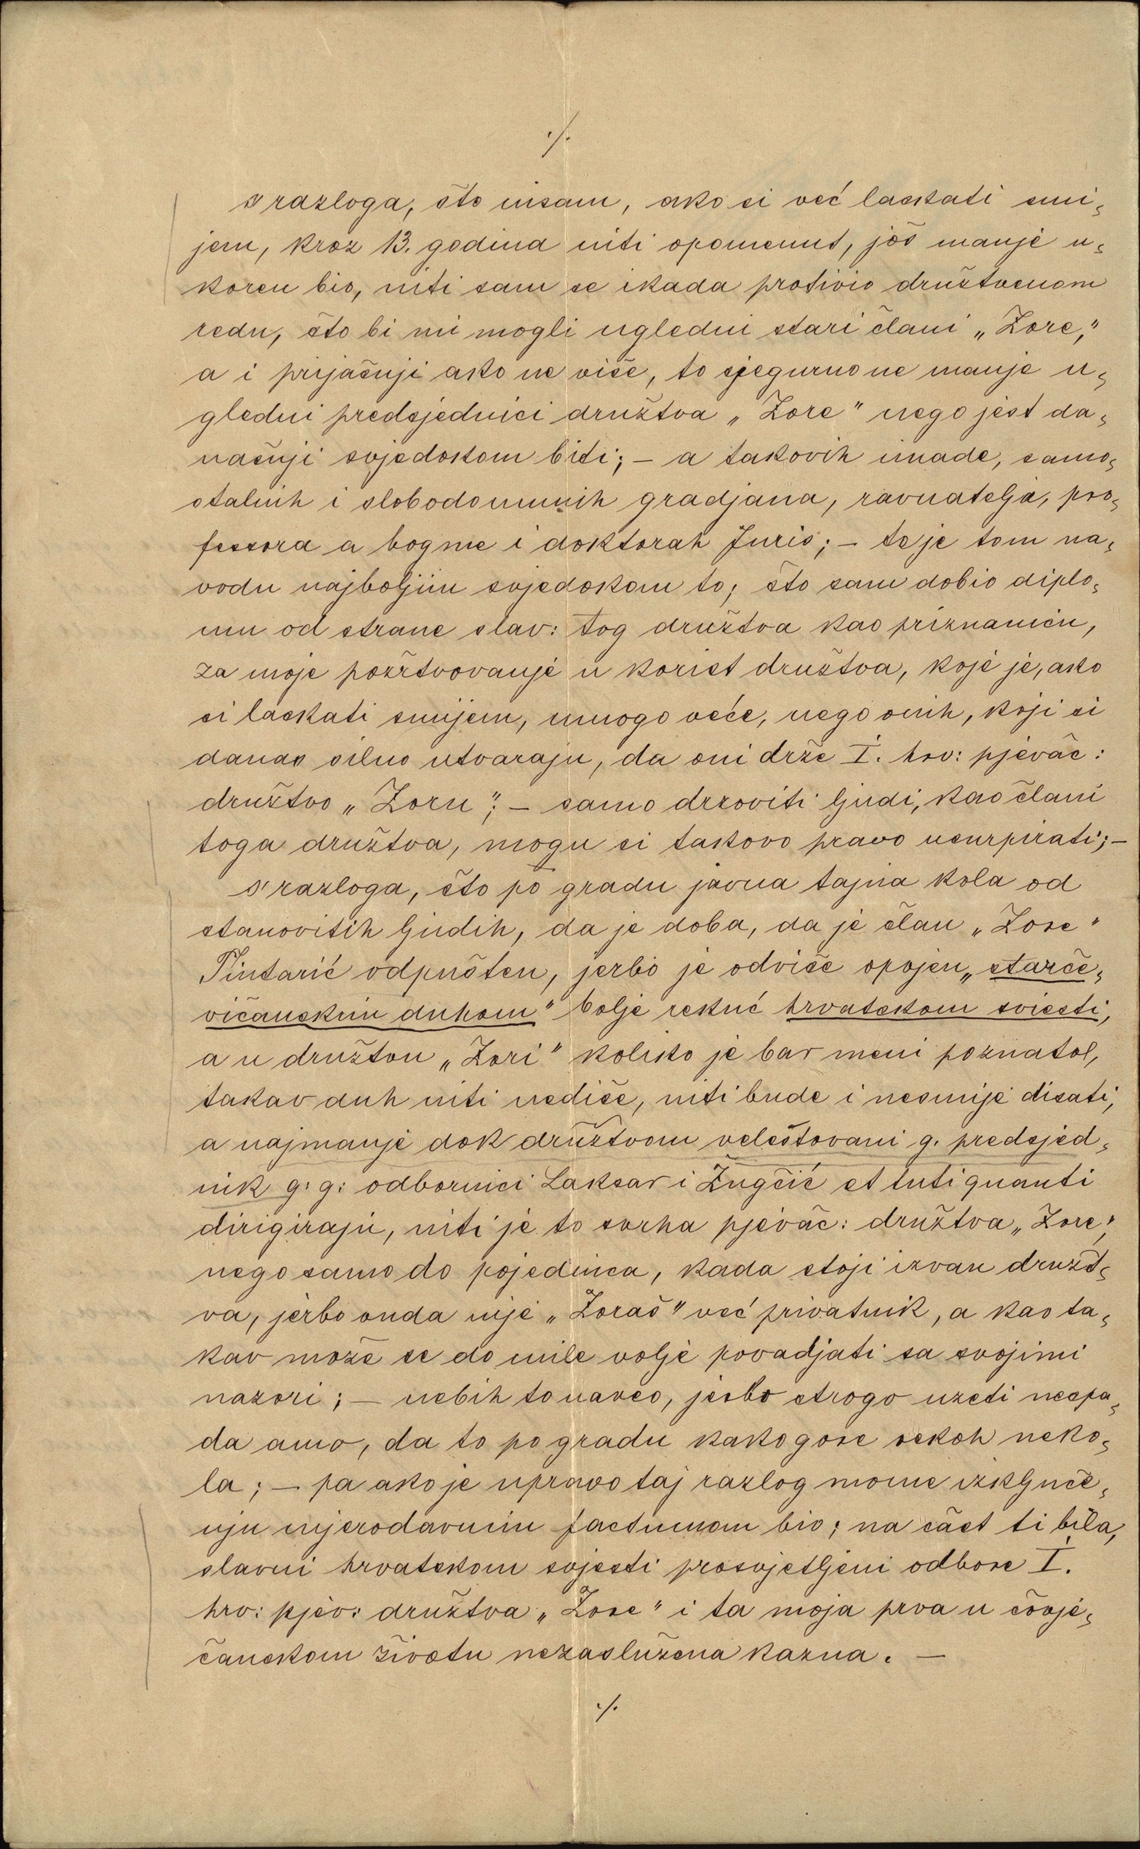 ./.
s razloga, što nisam, ako si već laskati smi,
jem, kroz 13. godina niti opomenut, još manje u,
koren bio, niti sam se ikada protivio družtvenom
redu, što bi mi mogli ugledni stari člani „Zore,"
a i prijašnji ako ne više, to sjegurno ne manje u,
gledni predsjednici družtva „Zore" nego jest da,
našnji svjedokom biti; — a takovih imade, samo,
stalnih i slobodoumnih gradjana, ravnatelja, pro,
fessora a bogme i doktorah Juris; — te je tom na,
vodu najboljim svjedokom to, što sam dobio diplo,
mu od strane slav: tog družtva kao priznanicu,
za moje požrtvovanje u korist družtva, koje je, ako
si laskati smijem, mnogo veće, nego onih, koji si
danas silno utvaraju, da oni drže I. hrv: pjevač:
družtvo „Zoru"; — samo drzoviti ljudi, kao člani
toga družtva, mogu si takovo pravo usurpirati; —
s' razloga, što po gradu javna tajna kola od
stanovitih ljudih, da je doba, da je član „Zore"
Tintarić odpušten, jerbo je odviše opojen „starče,
vičanskim duhom" bolje rekuć hrvatskom sviesti,
a u družtvu „Zori" koliko je bar meni poznato,
takav duh niti nediše, niti bude i nesmije disati,
a najmanje dok družtvom veleštovani g. predsjed,
nik g. g: odbornici Laksar i Žugčić et tuti quanti
dirigiraju, niti je to svrha pjevač: družtva „Zore",
nego samo do pojedinca, kada stoji izvan družt,
va, jerbo onda nije „Zoraš" već privatnik, a kao ta,
kav može se do mile volje povadjati sa svojimi
nazori; — nebih to naveo, jerbo strogo uzeti nespa,
da amo, da to po gradu kakogore rekoh neko,
la; — pa ako je upravo taj razlog mome izključe,
nju mjerodavnim factumom bio; na čast ti bila,
slavni hrvatskom svjesti prosvjetljeni odbore I.
hrv: pjev: družtva „Zore" i ta moja prva u čovje,
čanskom životu nezaslužena kazna. —
./.